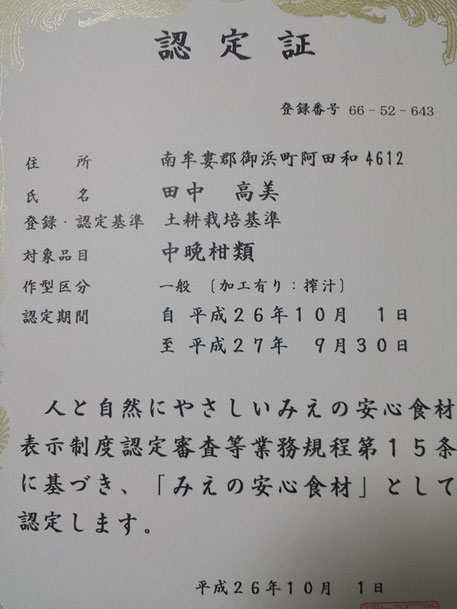 認定証
登録番号 66-52-643
住 所 南牟婁郡御浜町阿田和4612
氏 名 田中 高美
登録・認定基準 土耕栽培基準
対象品目 中晩柑類
作型区分 一般 〔加工有り：搾汁〕
認定期間 自 平成26年10月 1日
至 平成27年 9月30日
人と自然にやさしいみえの安心食材
表示制度認定審査等業務規程第15条
に基づき、「みえの安心食材」として
認定します。
平成26年10月 1日